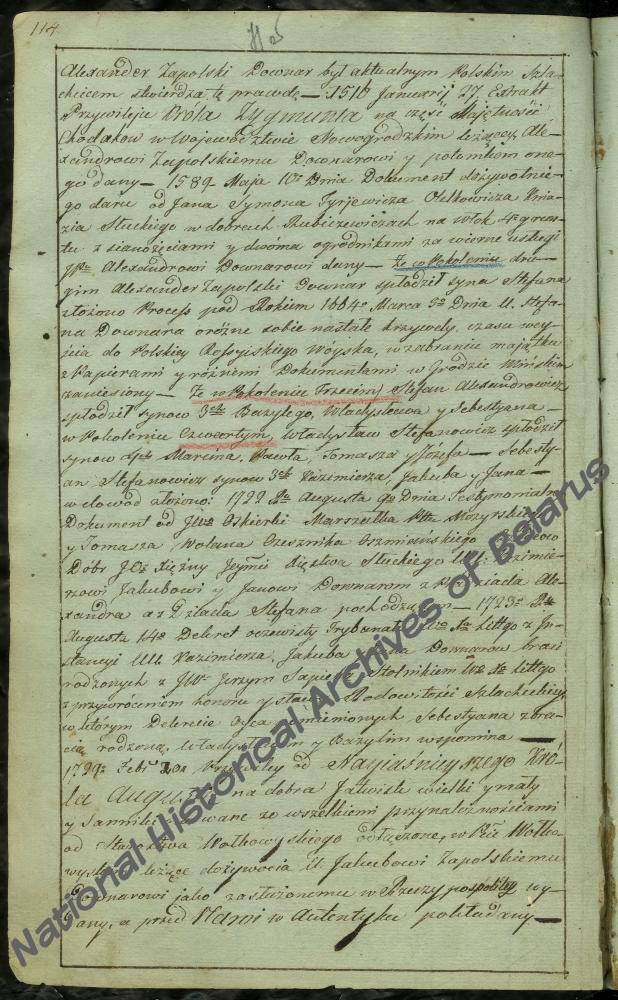 114
Alexander Zapolski Downar był aktualnym Polskim Szla-
chcicem stwierdza tę prawdę — 1516 Januarij 27 Extrakt
Przywileju Króla Zygmunta na część Majętności
Chodakow w Wojewodztwie Nowogrodzkim leżącey, Ale-
xandrowi Zapolskiemu Downarowi y potomkom one-
go dany — 1589 Maja 10 Dnia Dokument dożywotnie-
go daru od Jana Symona Jurjewicza Olelkowicza Knia-
zia Słuckiego w dobrach na włok 4
z sianożęciami y dwóma ogrodnikami za wierne usługi
JPu Alexandrowi Downarowi dany — Że w Pokoleniu dru-
gim Alexander Zapolski Downar spłodził syna Stefana
złożono Process pod Rokiem 1664 Marca 3 Dnia U. Stefa-
na Downara o różne sobie nastałe krzywdy, czasu wey-
ścia do Polskiey Rossyiskiego Woyska, w zabranie majątku
z Papierami y różnemi Dokumentami w Grodzie Mińskim
zaniesiony — Że w Pokoleniu Trzecim Stefan Alexandrowicz
spłodził synow 3ch Bazylego, Władysława y Sebestyana —
w Pokoleniu Czwartym, Władysław Stefanowicz spłodził
synow Marcina, Pawła, Tomasza y Józefa — Sebesty-
an Stefanowicz synow 3ch Kazimierza, Jakuba y Jana —
w dowod złożono: 1722 Ru Augusta 9 Dnia Testymonialny
Dokument od JWo Oskierki Marszałka Pttu Mozyrskiego
y Tomasza Wolana Czesznika Oszmiańskiego
Dobr JO Xiężny Jeymci Xięstwa Słuckiego UU. Kazimie-
rzowi Jakubowi y Janowi Downarom z Pradziada Ale-
xandra a z Dziada Stefana pochodzącym — 1723 Ru
Augusta 14 Dekret oczewisty Trybunału Wo Xa Littgo z In-
stancyi UU. Kazimierza, Jakuba Downarow braci
rodzonych z JWm Jerzym Sapiehą Stolnikiem Wo Xa Littgo
z przywróceniem honoru y sławy Rodowitości Szlacheckiey,
w którym Dekrecie Oyca Sebestyana z bra-
cią rodzoną, Władysławem y Bazylim wspomina —
Febr od Nayjaśnieyszego Kró-
la Augusta na dobra Jatwisk wielki y mały
y zwane ze wszelkiemi przynależnościami
od Starostwa Wołkowyskiego odłączone, w Pcie Wołko-
wyskim leżące dożywocia U. Jakubowi Zapolskiemu
Downarowi jako zasłużonemu w Rzeczypospolitey wy-
dany, a przed Nami w Autentyku pokładany —
National Historical Archives of Belarus